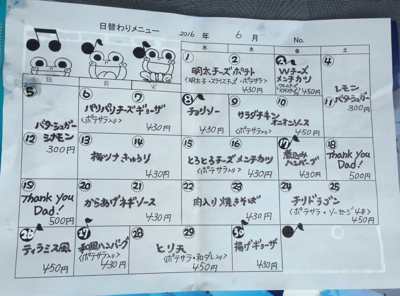 日替わりメニュー
2016年 6月 No.
水 木 金 土
① 明太チーズポテト
430円
② 
③ Wチーズ
メンチカツ
450円
④ レモン
バターシュガー
300円
日
⑤ バターシュガー
シナモン
300円
⑥ ⑦ パリパリチーズギョーザ
<ポテサラ入り>
430円
⑧ チョリソー
430円
⑨ ⑩ サラダチキン
オニオンソース
450円
⑪
⑫
⑬ ⑭ 梅ツナきゅうり
430円
⑮ ⑯ とろとろチーズメンチカツ
<ポテサラ入り>
430円
⑰ 煮込み
ハンバーグ
430円
⑱ Thank you
Dad!
500円
⑲ Thank you
Dad!
500円
⑳ 21 からあげネギソース
430円
22 23 肉入り焼きそば
430円
24 25 チリドラゴン
<ポテサラ・ソーセージ4本>
450円
26 ティラミス風
450円
27 和風ハンバーグ
<ポテサラ入り>
430円
28 29 とり天
450円
30 揚げギョーザ
430円